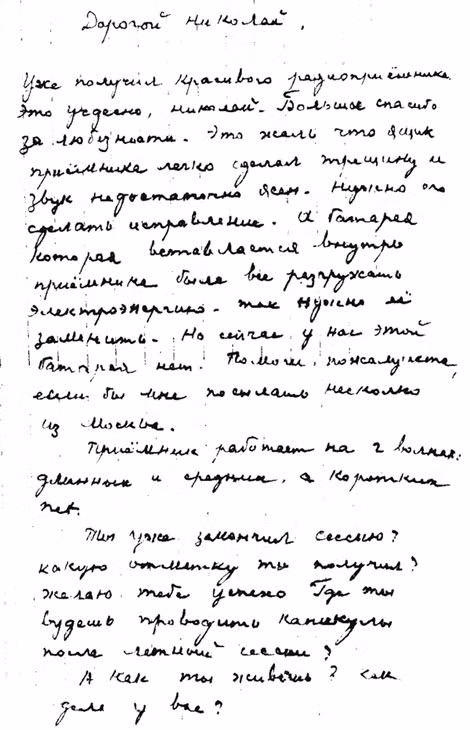 Дорогой Николай,
Уже получил красивого радиоприёмника.
Это чудесно, Николай. Большое спасибо
за любезности. Это жаль что ящик
приёмника легко сделал трещину и
звук недостаточно ясен. Нужно его
сделать исправление. И батарея
которая вставлается внутрь
приёмника была все разгружать
электроэнергию. так нужно её
заменить. Но сейчас у нас этой
батареи нет. Помочи, пожалуйста,
если бы мне посылать несколько
из Москве.
Приёмник работает на 2 волнах:
длинных и средних, а коротких
нет.
Ты уже закончил сессию?
какую отметку ты получил?
желаю тебе успеха Где ты
будешь проводить каникулы
после летный сессии?
А как ты живёшь? как
дела у вас?